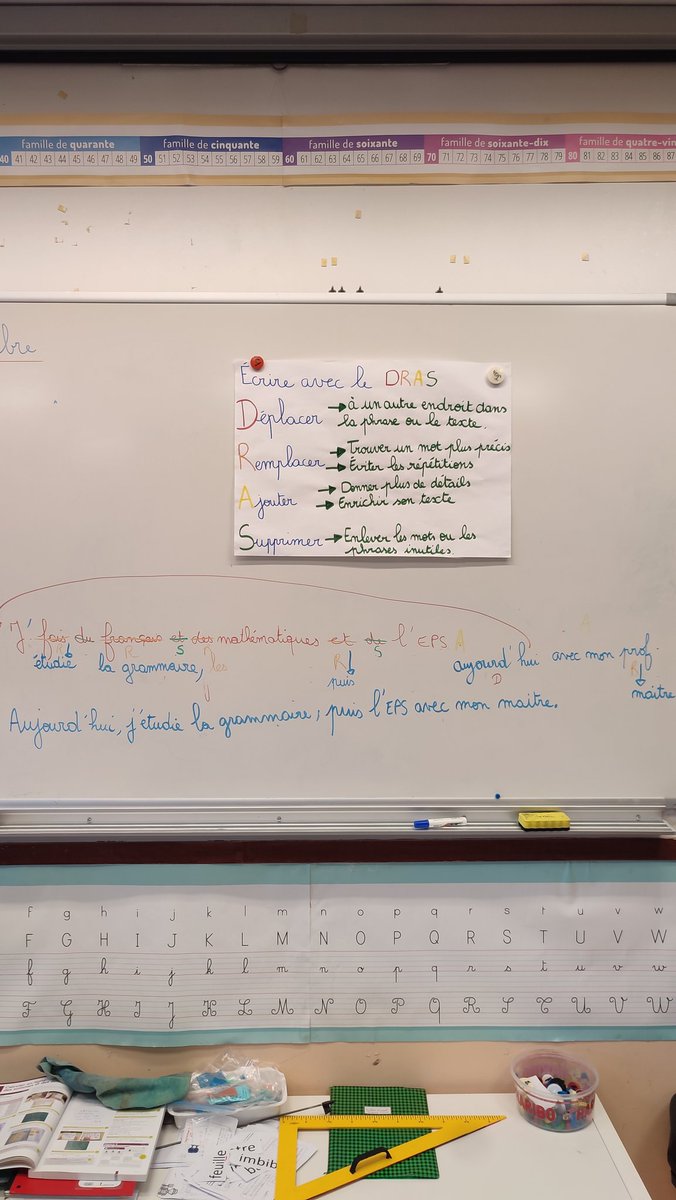 famille de quarante famille de cinquante famille de soixante famille de soixante-dix famille de quatre-vin
40 41 42 43 44 45 46 47 48 49 50 51 52 53 54 55 56 57 58 59 60 61 62 63 64 65 66 67 68 69 70 71 72 73 74 75 76 77 78 79 80 81 82 83 84 85 86 87
bre
Écrire avec le DRAS
Déplacer → à un autre endroit dans
la phrase ou le texte.
Remplacer → Trouver un mot plus précis
→ Éviter les répétitions
Ajouter → Donner plus de détails
→ Enrichir son texte
Supprimer → Enlever les mots ou les
phrases inutiles
J' fais du français et des mathématiques et de l'EPS A A
R R S R S
étudie la grammaire, les puis aujourd'hui avec mon prof
D R
maitre
Aujourd'hui, j'étudie la grammaire, puis l'EPS avec mon maitre.
f g h i j k l m n o p q r s t u v w
F G H I J K L M N O P Q R S T U V W
f g h i j k l m n o p q r s t u v w
F G H I J K L M N O P Q R S T U V W
feuille
imbib